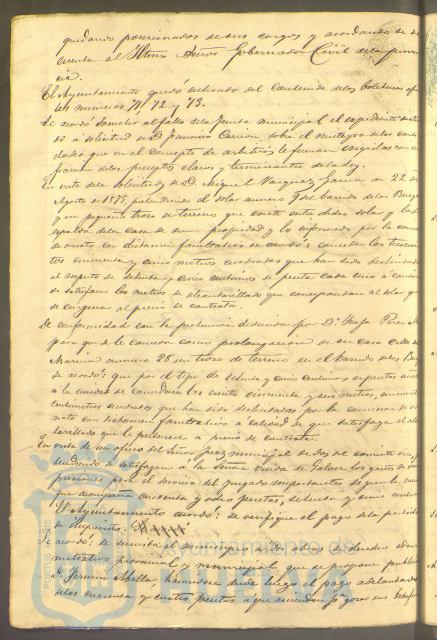 quedando posesionados de sus cargos y acordando se dé
cuenta al Iltmo Señor Gobernador Civil de la provin
cia.
El Ayuntamiento quedó enterado del contenido de los Boletines ofi
les números 71, 72 y 73.
Se acordó someter al fallo de la Junta municipal el expediente
do á solicitud de D. Francisco Carrion, sobre el reintegro de las canti
dades que en el concepto de arbitrios le fueron exigidas con in
fraccion de los preceptos claros y terminantes de la Ley.
En vista de la solicitud de D. Miguel Vazquez Garcia de 22 de
Agosto de 1875, pretendiendo el solar número 9 del barrio de las
y un pequeño trozo de terreno que existe entre dicho solar y la
espalda de la casa de su propiedad y lo informado por la comision
de ornato con dictamen facultativo se acordó: conceder los trescien
tos cincuenta y cinco metros cuadrados que han sido deslindados
al respecto de setenta y cinco centimos de peseta cada uno á condicion
de satisfacer los metros de alcantarillado que correspondan al solar
de esquina al precio de contrata.
De conformidad con la pretension deducida por D.ª Perez
para que se le conceda como prolongacion de su casa calle de
Marina número 25 un trozo de terreno en el barrio de las
se acordó: que por el tipo de setenta y cinco centimos de peseta
á la unidad se concedan los ciento cincuenta y seis metros, cincuenta
centimetros cuadrados que han sido deslindados por la comision de or
nato con dictamen facultativo á calidad de que satisfaga el alcan
tarillado que le pertenece á precio de contrata.
En vista de un oficio del Señor Juez municipal de dos del corriente
se satisfagan á la Señora Viuda de Galvez los gastos de im
presiones para el servicio del juzgado importantes segun la cuenta
que acompaña cincuenta y cuatro pesetas, setenta y cinco centimos
El Ayuntamiento acordó: se verifique el pago de la partida
de Imprevistos.
Se acordó: se suscriba el municipio á dos obras de derecho admi
nistrativo provincial y municipal que se propone publicar
D. Fermin Abella haciendose desde luego el pago adelantado
de las cuarenta y cuatro pesetas, á que ascienden
Ayuntamiento de
HUELVA